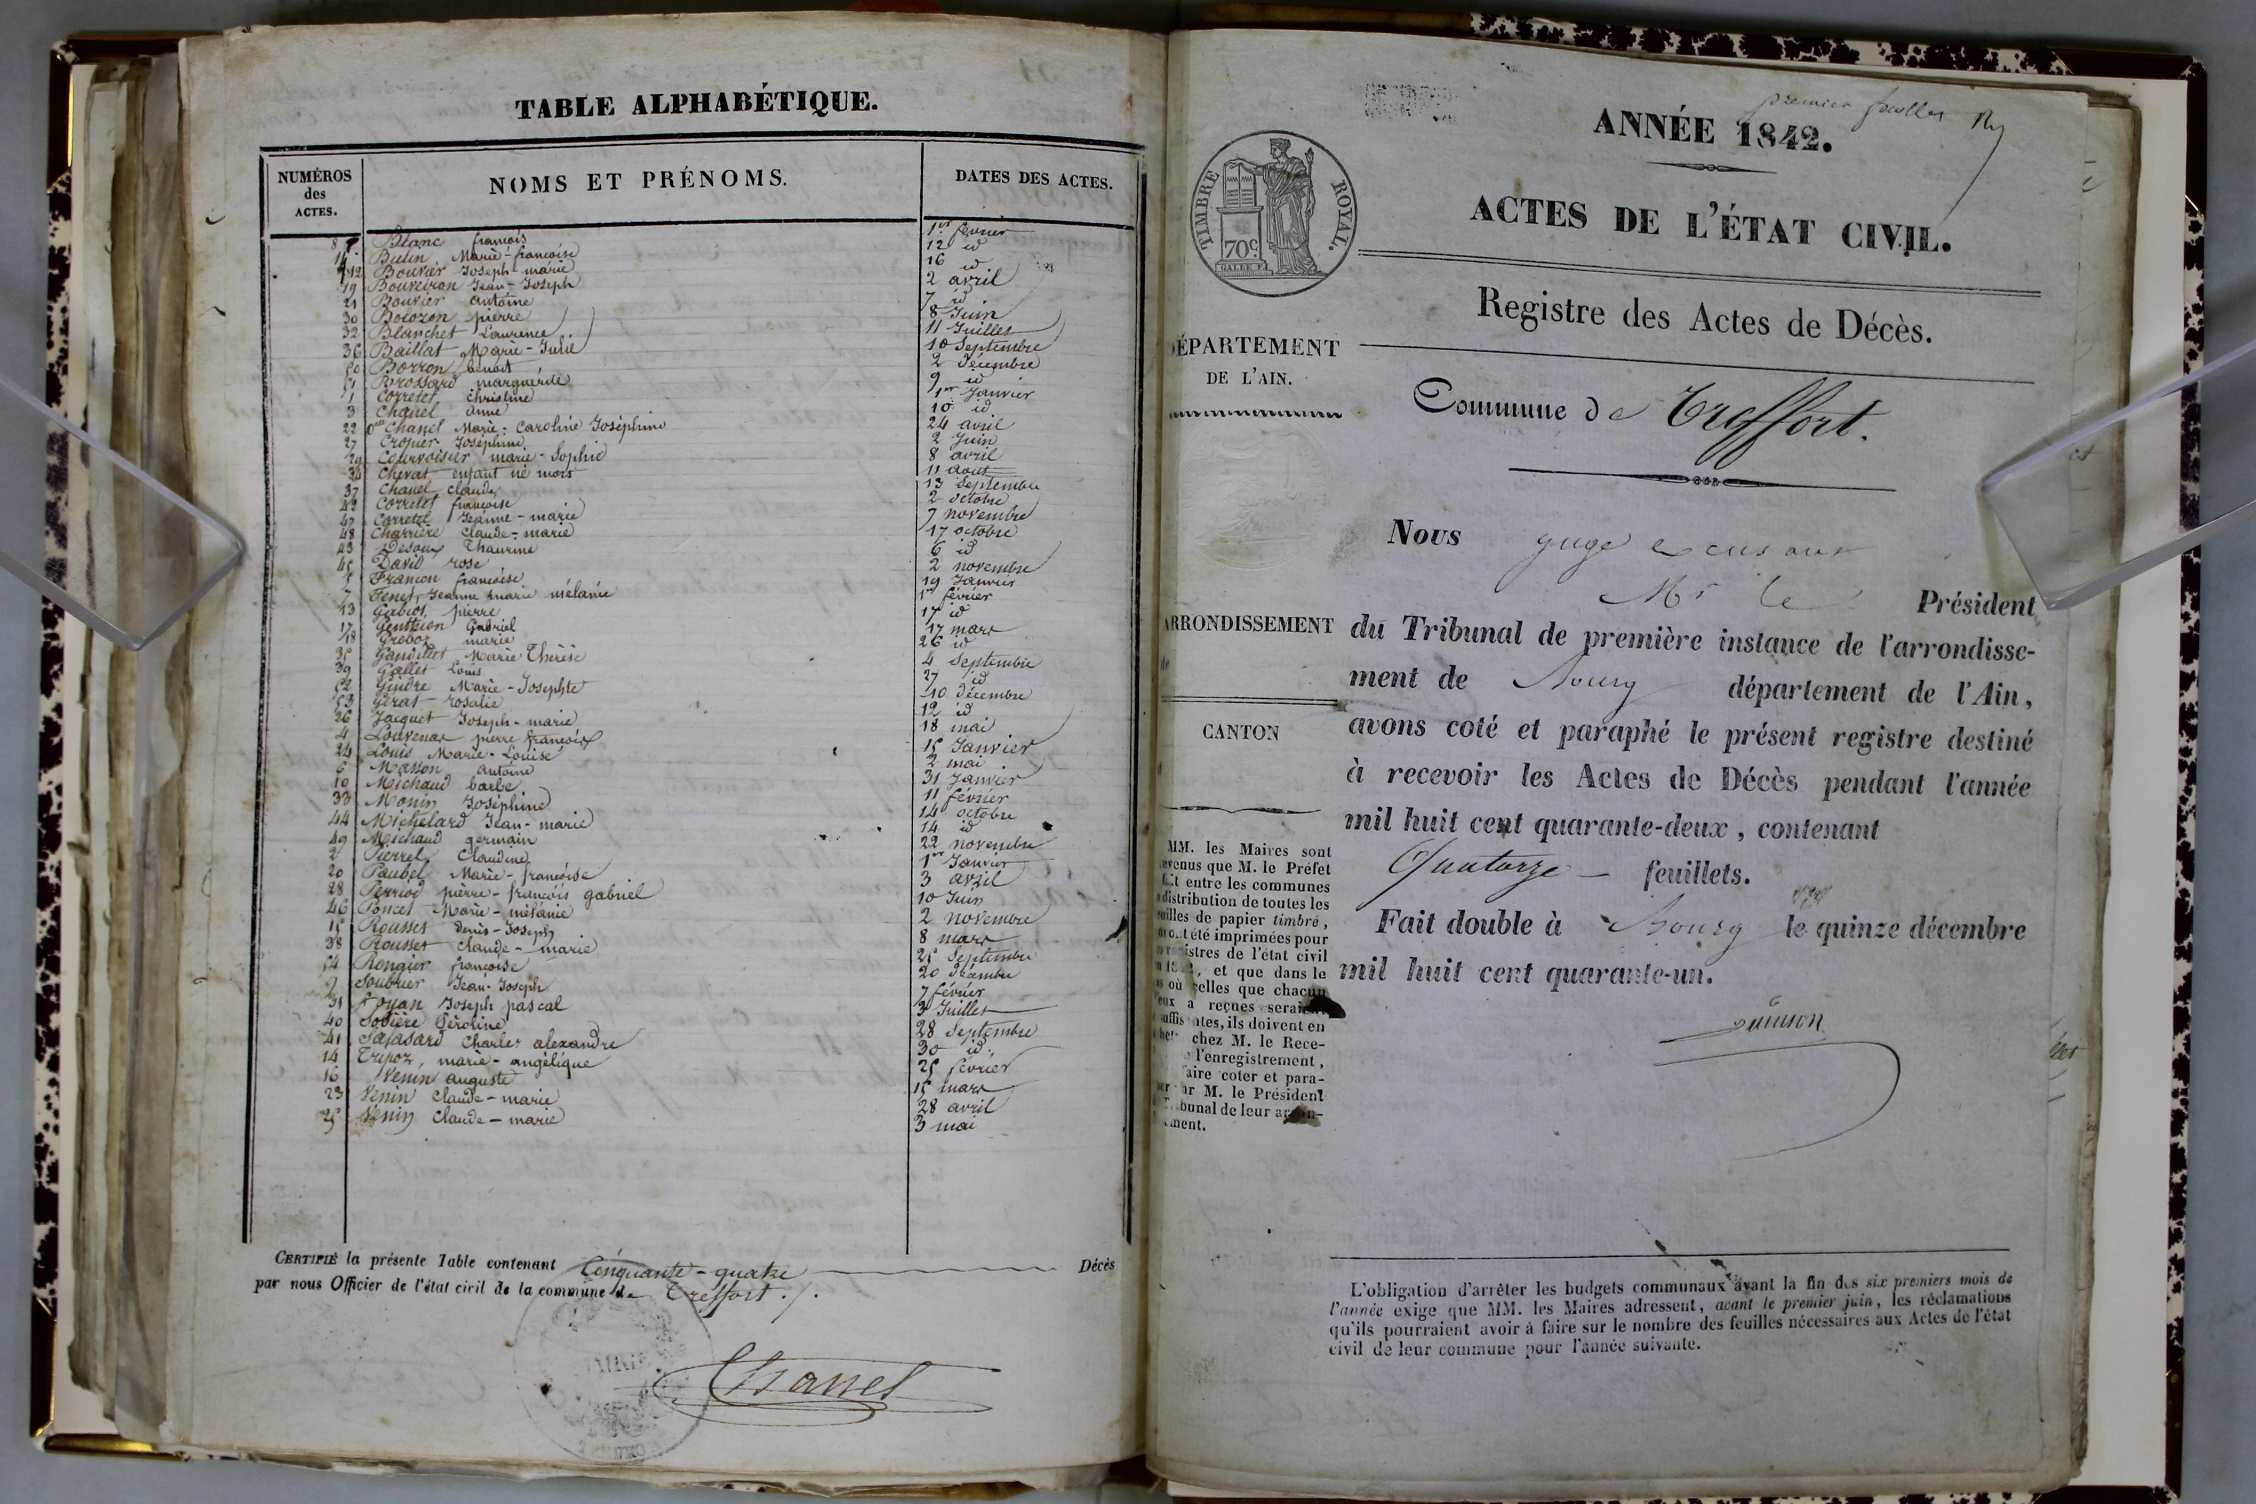 TABLE ALPHABÉTIQUE.
NUMÉROS des ACTES. NOMS ET PRÉNOMS. DATES DES ACTES.
8 Blanc françois 1er février
11 Butin Marie-françoise 12 id
12 Bouvier Joseph-marie 16 id
19 Bouveiron Jean-Joseph 2 avril
21 Bouvier antoine 7 id
30 Bolozon pierre 8 Juin
32 Blanchet Laurence 11 Juillet
36 Baillat Marie-Julie 10 Septembre
50 Borron benoit 2 Décembre
51 Brossard marguerite 9 id
1 Corretet christine 1er Janvier
3 Chanel anne 10 id
22 Chanel Marie-Caroline Joséphine 24 avril
27 Croyier Joséphine 2 Juin
29 Courvoisier marie-Sophie 8 avril
34 Chevat enfant né mort 11 aout
37 Chanel claude 13 Septembre
42 Corretet françoise 2 octobre
47 Corretet Jeanne-marie 7 novembre
48 Charrière Claude-marie 17 octobre
43 Thaurine 6 id
45 David rose 2 novembre
5 Françon françoise 19 Janvier
7 Fenet Jeanne marie mélanie 1er février
13 Gabiot pierre 17 id
17 Genthion Gabriel 17 mars
18 Grebot marie 26 id
35 Gandillet Marie Thérèse 4 Septembre
39 Gallet Louis 27 id
52 Gindre Marie-Josephte 10 Décembre
53 Gerat rosalie 12 id
26 Jacquet Joseph-marie 18 mai
4 Louvenas pierre françois 15 Janvier
24 Louis Marie-Louise 2 mai
6 Masson antoine 31 Janvier
10 Michaud barbe 11 février
33 Monin Joséphine 14 octobre
44 Michelard Jean-marie 14 id
49 Michaud germain 22 novembre
2 Pierrel Claudine 1er Janvier
20 Paubel Marie-françoise 3 avril
28 Perriod pierre-françois gabriel 10 Juin
46 Poncet Marie-mélanie 2 novembre
15 Rousset Denis-Joseph 8 mars
38 Rousset Claude-marie 25 Septembre
54 Rongier françoise 20 Décembre
9 Soubrier Jean-Joseph 7 février
31 Soyan Joseph pascal 3 Juillet
40 Sodière Péroline 28 Septembre
41 Salasard Charles alexandre 30 id
14 Tripoz, marie-angélique 25 février
16 Venin auguste 15 mars
23 Venin Claude-marie 28 avril
25 Venin Claude-marie 3 mai
CERTIFIÉ la présente Table contenant Cinquante-quatre Décès
par nous Officier de l'état civil de la commune de Treffort./.
MAIRIE
Chanel
premier feuillet
ANNÉE 1842.
TIMBRE ROYAL.
70c
ACTES DE L'ÉTAT CIVIL.
Registre des Actes de Décès.
DÉPARTEMENT
DE L'AIN.
Commune de Treffort.
Nous juge
Mr le Président
ARRONDISSEMENT
du Tribunal de première instance de l'arrondisse-
ment de Bourg département de l'Ain,
CANTON
avons coté et paraphé le présent registre destiné
à recevoir les Actes de Décès pendant l'année
mil huit cent quarante-deux, contenant
Quatorze feuillets.
Fait double à Bourg le quinze décembre
mil huit cent quarante-un.
MM. les Maires sont
que M. le Préfet
entre les communes
distribution de toutes les
de papier timbré,
été imprimées pour
registres de l'état civil
et que dans le
où celles que chacun
a reçues
ils doivent en
chez M. le Rece-
l'enregistrement,
faire coter et para-
par M. le Président
Tribunal de leur
L'obligation d'arrêter les budgets communaux avant la fin des six premiers mois de
l'année exige que MM. les Maires adressent, avant le premier juin, les réclamations
qu'ils pourraient avoir à faire sur le nombre des feuilles nécessaires aux Actes de l'état
civil de leur commune pour l'année suivante.